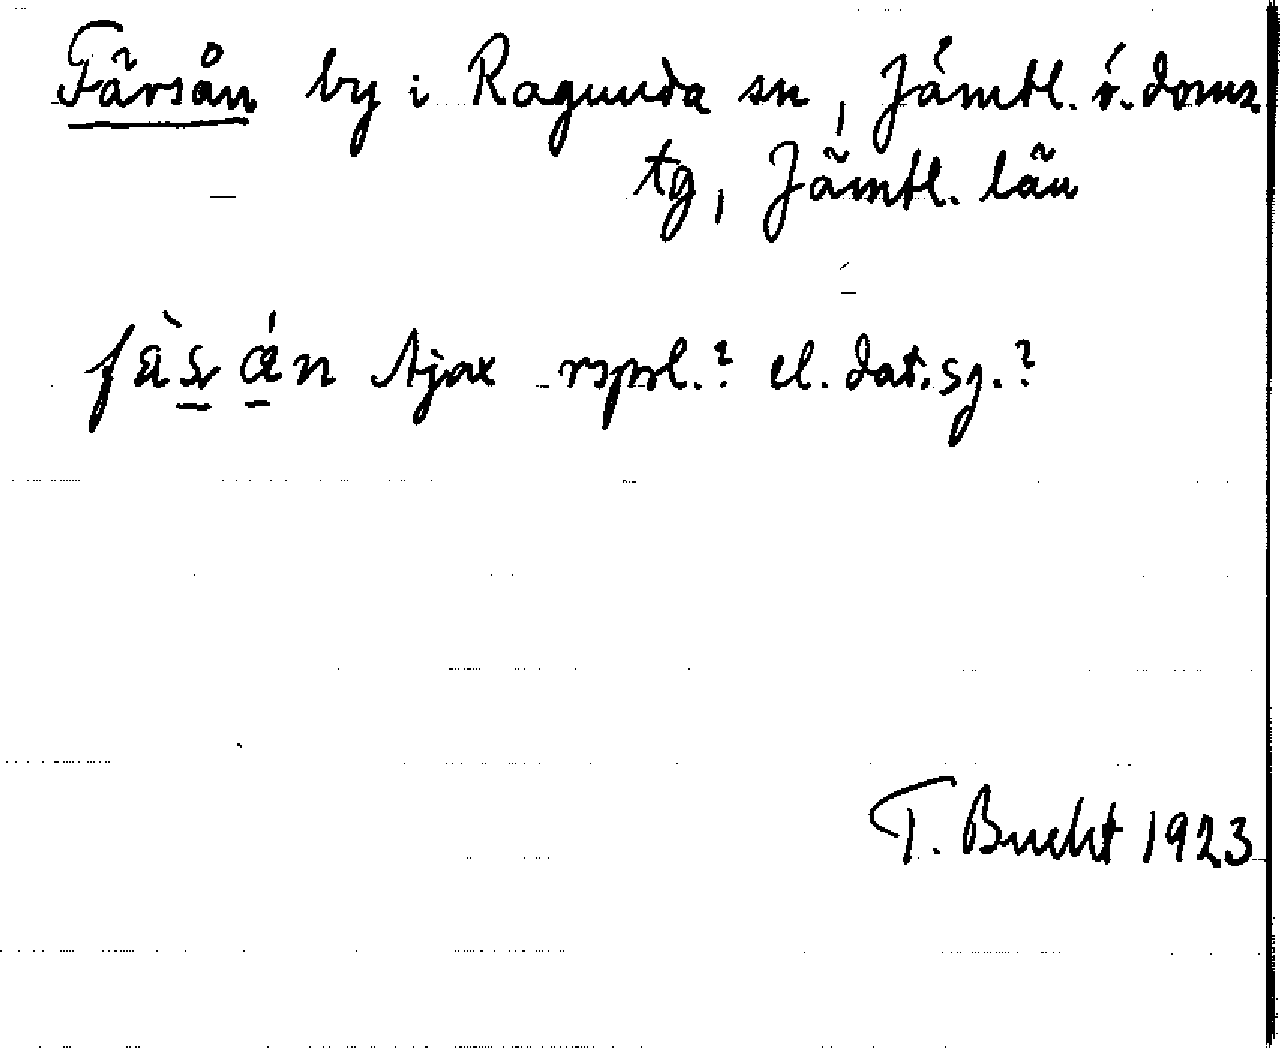 Färsån by i Ragunda sn, Jämtl. ö. doms
tg, Jämtl. län
fàsán Ajax rsprl.? el. dat. sg.?
T. Bucht 1923